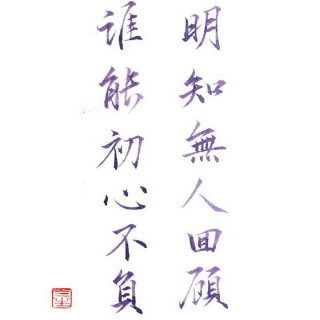 明知無人回顧
誰能初心不負